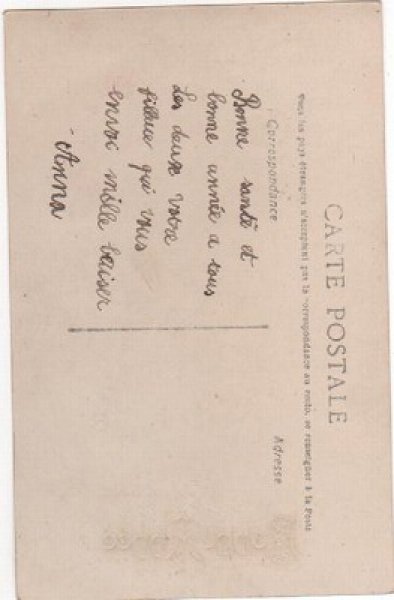 CARTE POSTALE
Tous les pays étrangers n'acceptent pas la correspondance au recto, se renseigner à la Poste
Correspondance
Adresse
Bonne santé et
bonne année a tous
Les deux Votre
filleue qui vous
envoi mille baiser
Anna